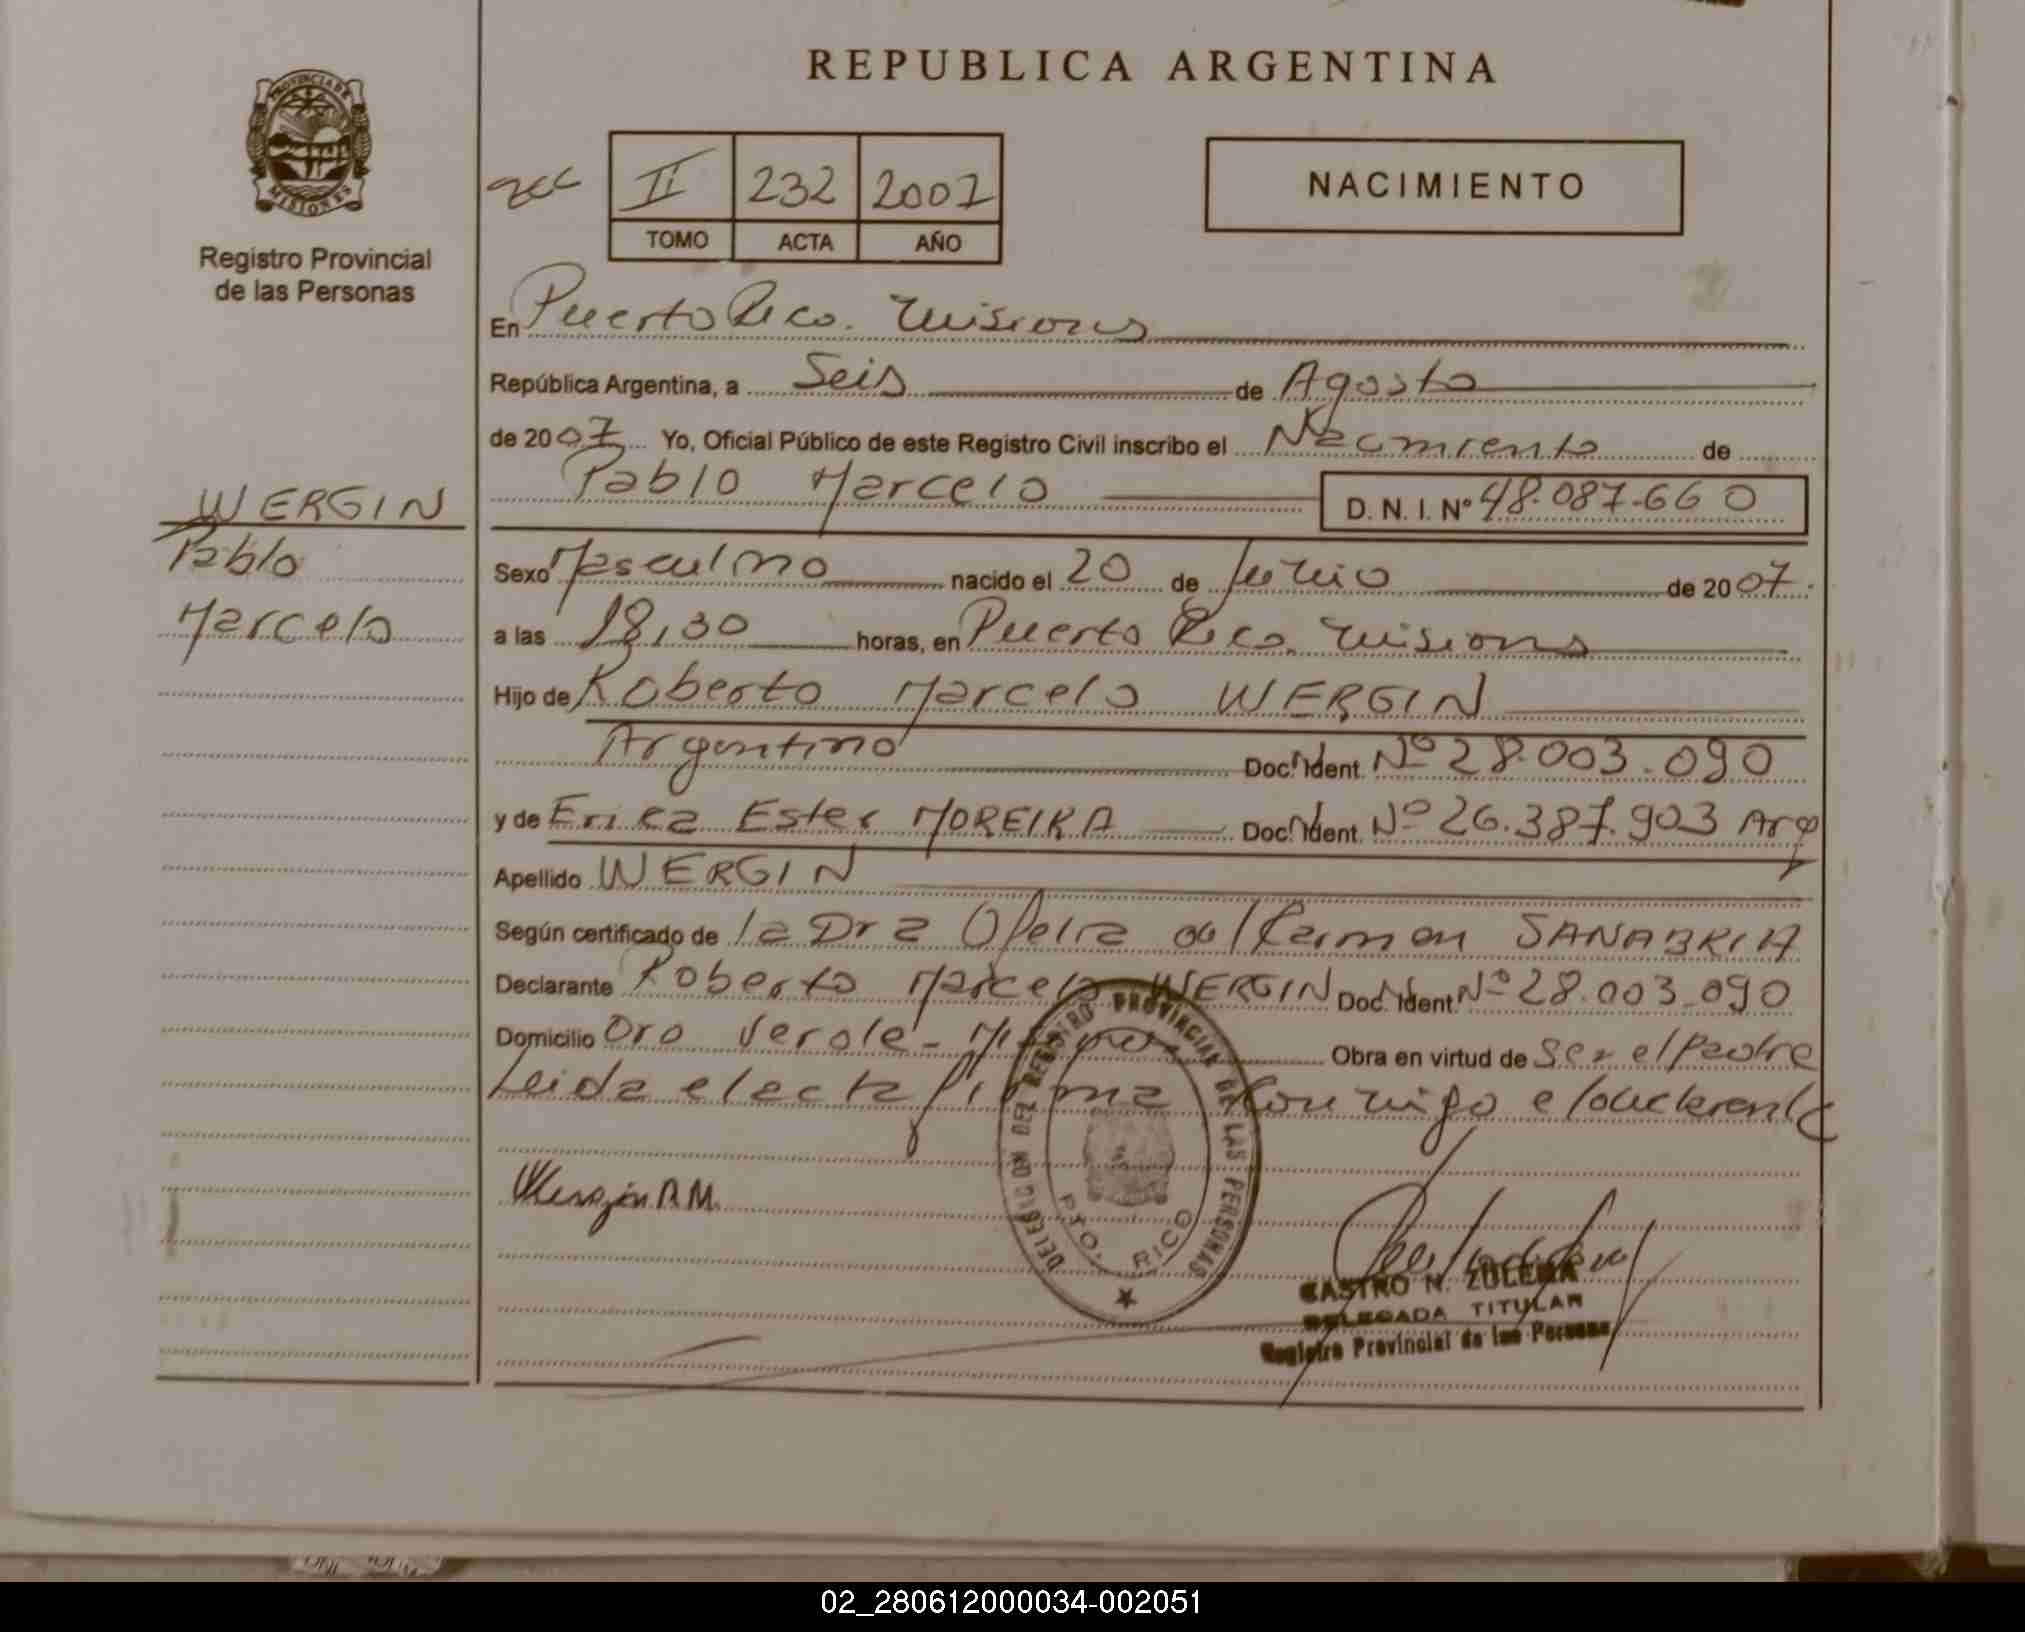 REPUBLICA ARGENTINA
PROVINCIA DE
MISIONES
Registro Provincial
de las Personas
II 232 2007
TOMO ACTA AÑO
NACIMIENTO
En Puerto Rico. Misiones
República Argentina, a Seis de Agosto
de 2007 Yo, Oficial Público de este Registro Civil inscribo el Nacimiento de
Pablo Marcelo D. N. I. Nº 48.087.660
WERGIN
Pablo
Marcelo
Sexo Masculino nacido el 20 de Junio de 2007.
a las 18,30 horas, en Puerto Rico. Misiones
Hijo de Roberto Marcelo WERGIN
Argentino Doc. Ident. Nº 28.003.090
y de Erica Ester MOREIRA Doc. Ident. Nº 26.387.903 Arg
Apellido WERGIN
Según certificado de la Dra Ofelia del Carmen SANABRIA
Declarante Roberto Marcelo WERGIN Doc. Ident. Nº 28.003.090
Domicilio Oro Verde - Misiones Obra en virtud de Ser el Padre
Leida el acta firma Conmigo el declarante
Wergin R.M.
DELEGACION DEL REGISTRO PROVINCIAL DE LAS PERSONAS
PTO. RICO
CASTRO N. ZULEMA
DELEGADA TITULAR
Registro Provincial de las Personas
02_280612000034-002051